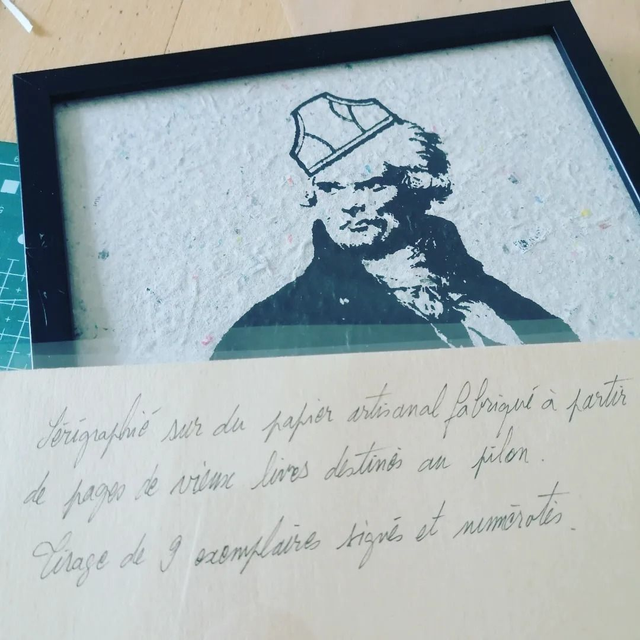 Sérigraphié sur du papier artisanal fabriqué à partir
de pages de vieux livres destinés au pilon.
Tirage de 9 exemplaires signés et numérotés.